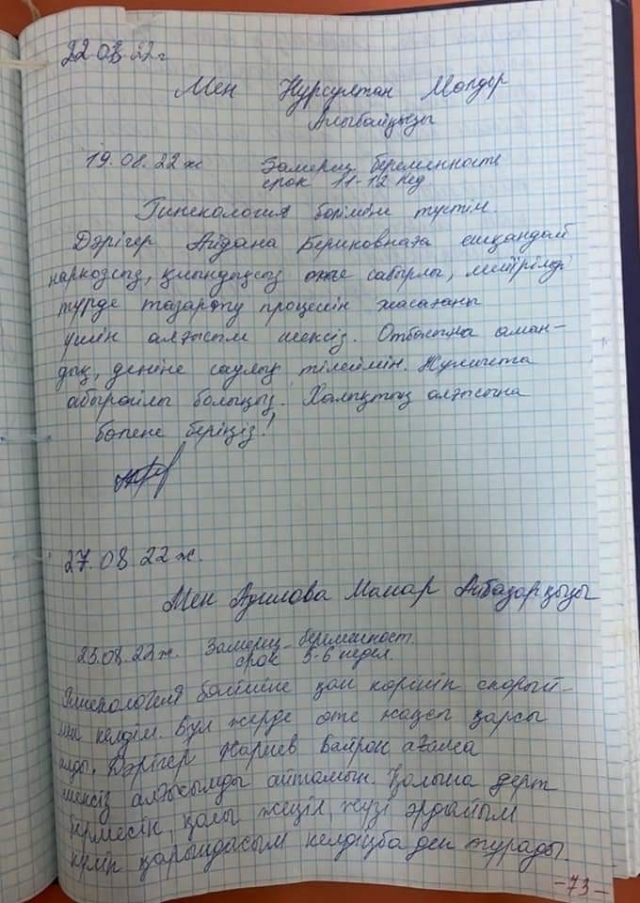 22.08.22г
Мен Нурсултан Молдер
Алыбайқызы
19.08.22ж Замерш беременность
срок 11-12 нед
Гинекология бөліміне түстім.
Дәрігер Айдана Бериковнаға ешқандай
наркозсыз, қиындықсыз өте сабырлы, мейірімді
түрде тазарту процесін жасағаны
үшін алғысым шексіз. Отбасына аман-
дық, деніне саулық тілеймін. Жұмыста
абыройлы болыңыз. Халықтың алғысына
бөлене беріңіз!
27.08.22ж.
Мен Азилова Мамар Айбазарқызы
25.08.22ж. Замерш беременност.
срок 5-6 недел.
Гинекология бөліміне қан көрініп скорый-
мен келдім. Бұл жерде өте жақсы қарсы
алды. Дәрігер Нариев Байрон ағайға
шексіз алғысымды айтамын. Қолыңа дерт
кірмесін, қолы жеңіл жүзі әрдайым
күліп қарындасым келдіңба деп тұрады.
-73-